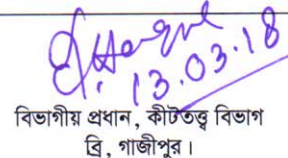 13.03.18
বিভাগীয় প্রধান, কীটতত্ত্ব বিভাগ
ব্রি, গাজীপুর।